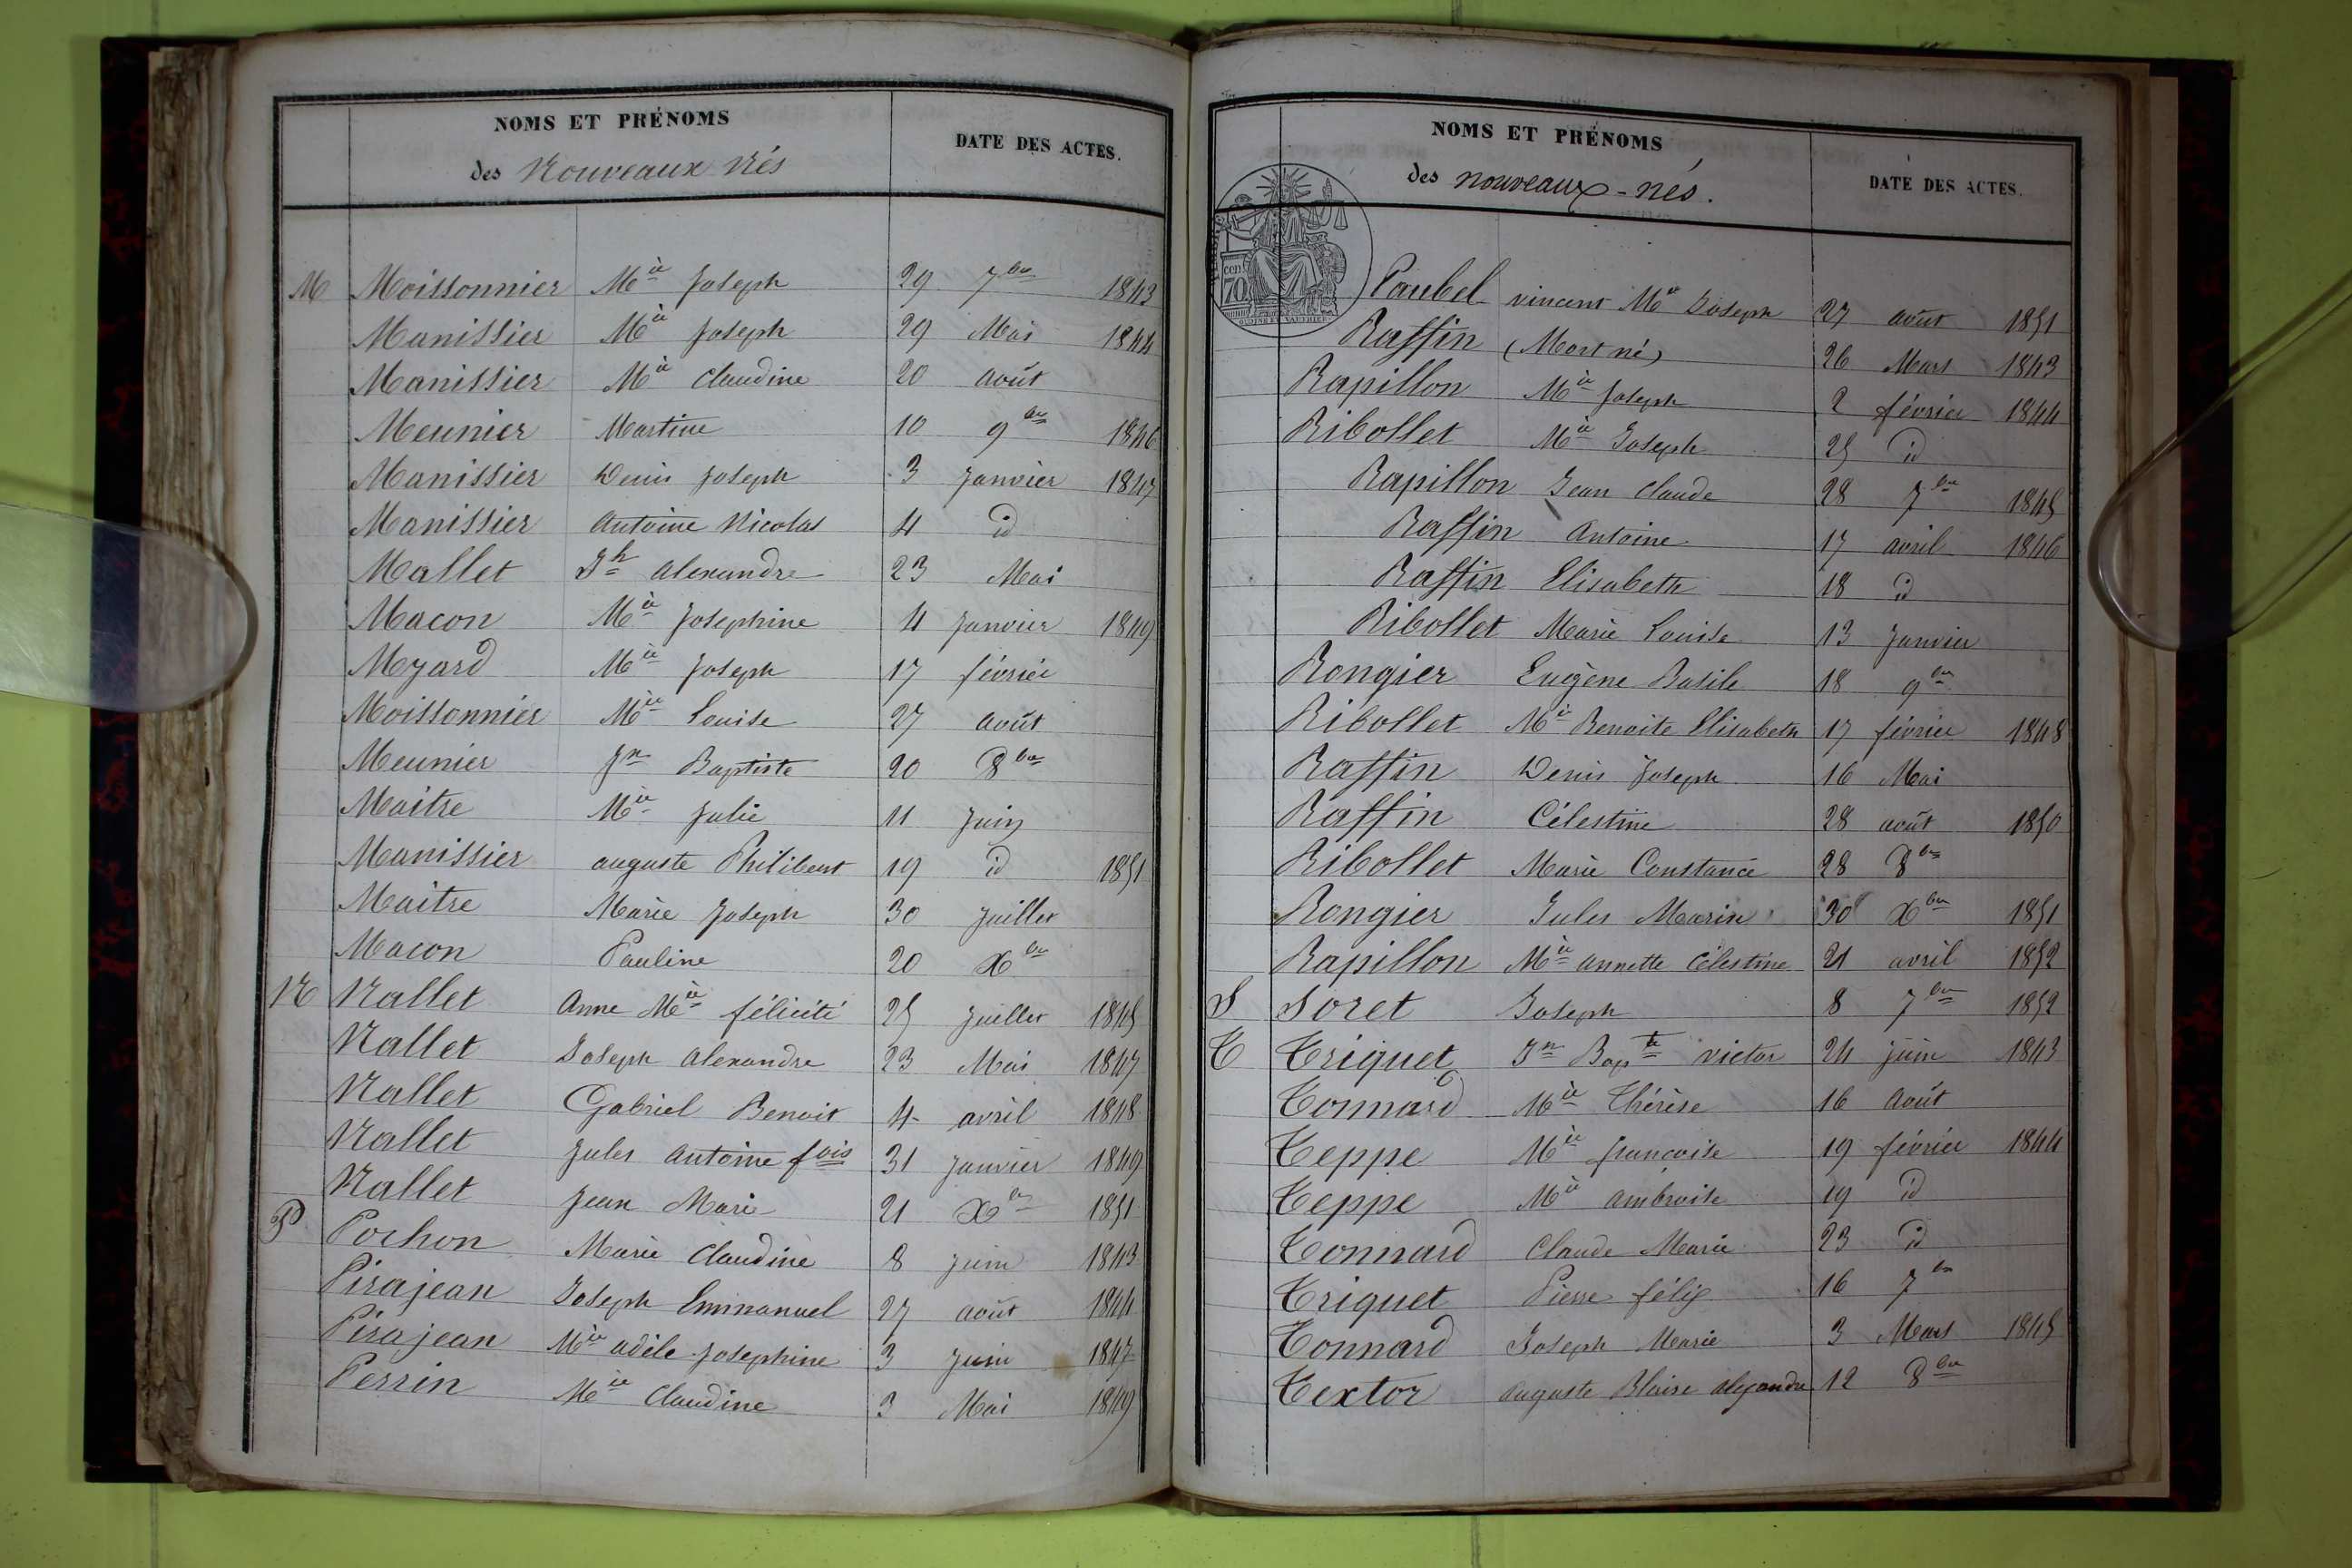 NOMS ET PRÉNOMS
des Nouveaux Nés
DATE DES ACTES.
M Moissonnier Mie Joseph 29 7bre 1843
Manissier Mie Joseph 29 Mai 1844
Manissier Mie Claudine 20 août
Meunier Martine 10 9bre 1846
Manissier Denis Joseph 3 Janvier 1847
Manissier Antoine Nicolas 4 id
Mallet Jh Alexandre 23 Mai
Macon Mie Josephine 4 Janvier 1849
Myard Mie Joseph 17 février
Moissonnier Mie Louise 27 août
Meunier Jn Baptiste 20 8bre
Maitre Mie Julie 11 Juin
Manissier auguste Philibert 19 id 1851
Maitre Marie Joseph 30 Juillet
Macon Pauline 20 Xbre
N Nallet Anne Mie félicité 25 Juillet 1845
Nallet Joseph Alexandre 23 Mai 1847
Nallet Gabriel Benoit 4 avril 1848
Nallet Jules Antoine fois 31 Janvier 1849
Nallet Jean Marie 21 Xbre 1851
P Pochon Marie Claudine 8 Juin 1843
Pirajean Joseph Emmanuel 27 août 1844
Pirajean Mie adèle Josephine 3 Juin 1847
Perrin Mie Claudine 3 Mai 1849
NOMS ET PRÉNOMS
des nouveaux-nés.
DATE DES ACTES.
cent
70
Paubel vincent Mie Joseph 27 août 1851
Raffin (Mort né) 26 Mars 1843
Rapillon Mie Joseph 2 février 1844
Ribollet Mie Joseph 25 id
Rapillon Jean Claude 28 7bre 1845
Raffin Antoine 17 avril 1846
Raffin Elisabeth 18 id
Ribollet Marie Louise 13 Janvier
Rongier Eugène Basile 18 9bre
Ribollet Mie Benoite Elisabeth 17 février 1848
Raffin Denis Joseph 16 Mai
Raffin Célestine 28 août 1850
Ribollet Marie Constance 28 8bre
Rongier Jules Marin 30 Xbre 1851
Rapillon Mie Annette Célestine 21 avril 1852
S Soret Joseph 8 7bre 1852
T Triquet Jn Bapte victor 24 juin 1843
Tonnard Mie Thérèse 16 Août
Teppe Mie françoise 19 février 1844
Teppe Mie ambroise 19 id
Tonnard Claude Marie 23 id
Triquet Pierre félix 16 7bre
Tonnard Joseph Marie 3 Mars 1845
Textor Auguste Blaise Alexandre 12 8bre